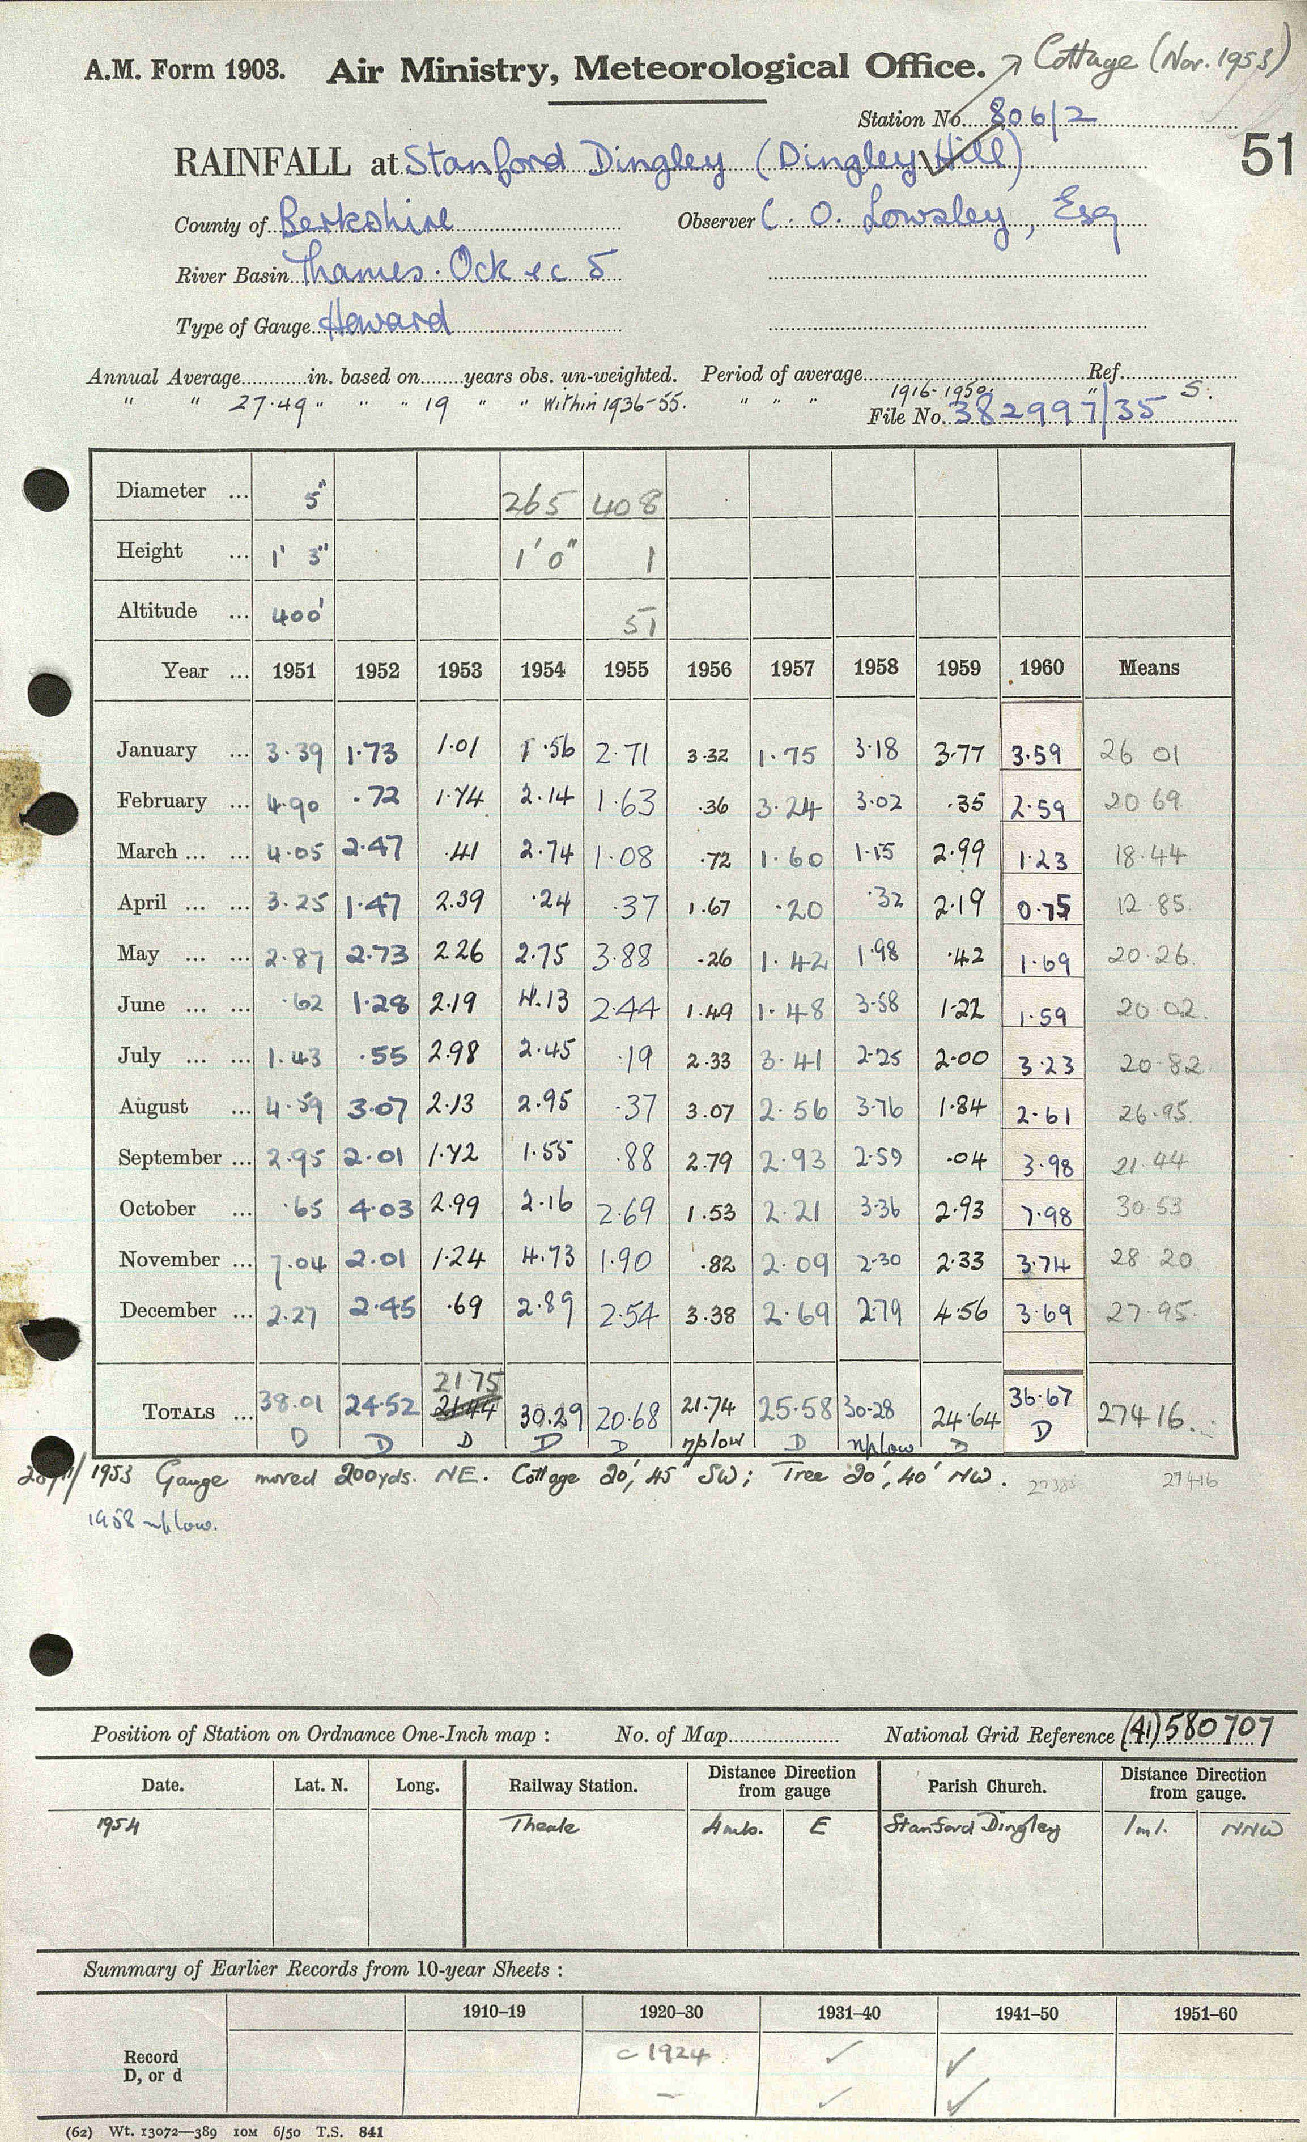 A.M. Form 1903. Air Ministry, Meteorological Office. Cottage (Nov. 1953)
Station No. 806/2
RAINFALL at Stanford Dingley (Dingley Hill) 51
County of Berkshire Observer C. O. Lowsley, Esq
River Basin Thames. Ock &c 5
Type of Gauge Howard
Annual Average in. based on years obs. un-weighted. Period of average Ref.
" " 27.49 " " 19 " " Within 1936-55. " " " 1916-1950. " S.
File No. 382997/35
Diameter ... 5" 265 408
Height ... 1' 3" 1' 0" 1
Altitude ... 400' 51
Year ... 1951 1952 1953 1954 1955 1956 1957 1958 1959 1960 Means
January ... 3.39 1.73 1.01 1.56 2.71 3.32 1.75 3.18 3.77 3.59 26 01
February ... 4.90 .72 1.74 2.14 1.63 .36 3.24 3.02 .35 2.59 20 69
March ... ... 4.05 2.47 .41 2.74 1.08 .72 1.60 1.15 2.99 1.23 18.44
April ... ... 3.25 1.47 2.39 .24 .37 1.67 .20 .32 2.19 0.75 12.85
May ... ... 2.87 2.73 2.26 2.75 3.88 .26 1.42 1.98 .42 1.69 20.26
June ... ... .62 1.28 2.19 4.13 2.44 1.49 1.48 3.58 1.22 1.59 20.02
July ... ... 1.43 .55 2.98 2.45 .19 2.33 3.41 2.25 2.00 3.23 20.82
August ... 4.59 3.07 2.13 2.95 .37 3.07 2.56 3.76 1.84 2.61 26.95
September ... 2.95 2.01 1.72 1.55 .88 2.79 2.93 2.59 .04 3.98 21.44
October ... .65 4.03 2.99 2.16 2.69 1.53 2.21 3.36 2.93 7.98 30.53
November ... 7.04 2.01 1.24 4.73 1.90 .82 2.09 2.30 2.33 3.74 28 20
December ... 2.27 2.45 .69 2.89 2.54 3.38 2.69 2.79 4.56 3.69 27.95
21 75
TOTALS ... 38.01 24.52 21.44 30.29 20.68 21.74 25.58 30.28 24.64 36.67 274 16
D D D D D np low D np low D D
1953 Gauge moved 200yds. NE. Cottage 20', 45' SW; Tree 20', 40' NW. 27416
1958 np low.
Position of Station on Ordnance One-Inch map : No. of Map National Grid Reference (41) 580707
Date. Lat. N. Long. Railway Station. Distance from gauge Direction Parish Church. Distance from gauge. Direction
1954 Theale 4 mls. E Stanford Dingley 1 ml. NNW
Summary of Earlier Records from 10-year Sheets :
1910–19 1920–30 1931–40 1941–50 1951–60
Record c 1924 ✓ ✓
D, or d – ✓ ✓
(62) Wt. 13072—389 10M 6/50 T.S. 841